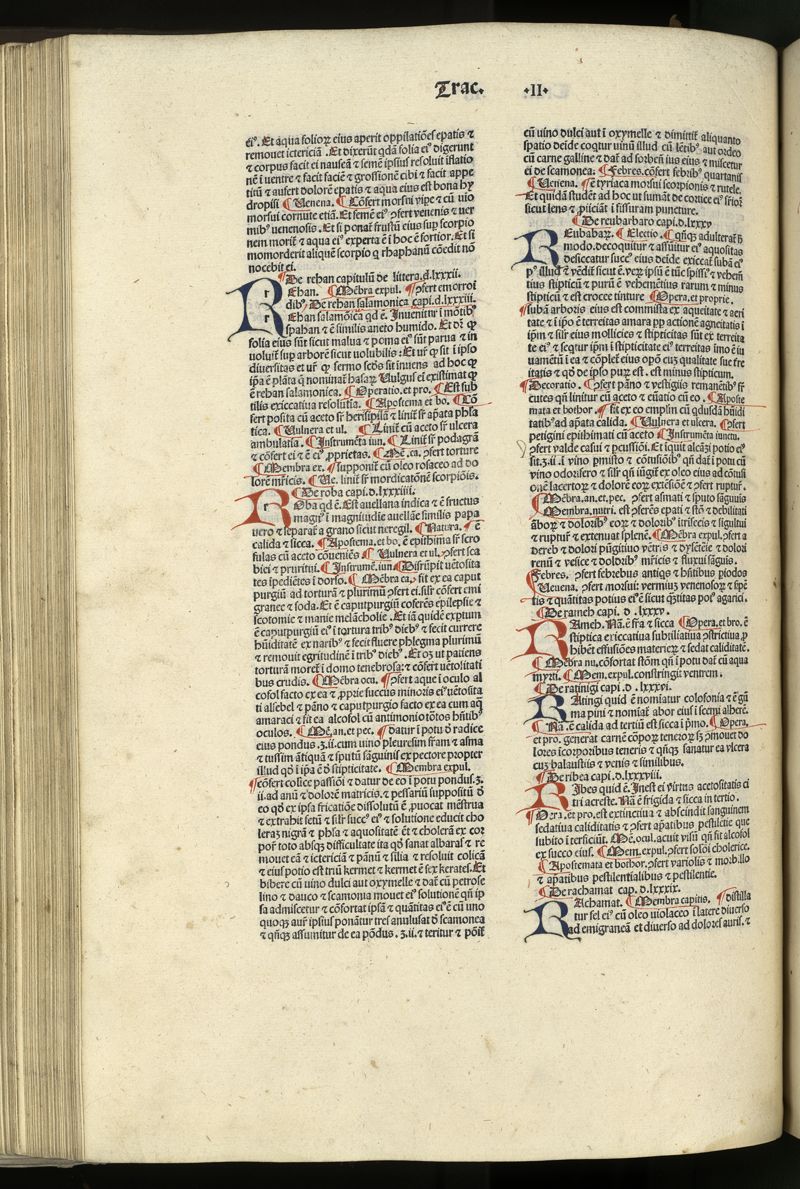 Trac. .II.
eiꝰ. Et aqua folioꝝ eius aperit oppilatiões epatis ⁊
remouet ictericiã. Et dixerũt qdã folia eiꝰ digerunt
⁊ corpus facit ei nauseã ⁊ semẽ ipsius resoluit iflatio
nem ĩ uentre ⁊ facit faciẽ ⁊ grossionẽ cibi ⁊ facit appe
titũ ⁊ aufert dolorẽ epatis ⁊ aqua eius est bona hy
dropisi ¶ Uenena. ¶ Cõfert morsui vipe ⁊ cũ uio
morsui cornute etiã. Et semẽ eiꝰ ꝯfert venenis ⁊ uer
mibꝰ uenenosis. Et si ponat̃ frustũ eius sup̱ scorpio
nem morit̃ ⁊ aqua ei experta ẽ ĩ hoc ẽ fortior. Et si
momorderit aliquẽ scorpio q rhaphanũ cõedit nõ
nocebit ei.
¶ De rehan capitulũ de littera.d.lxxxii.
REhan. ¶ Mẽbra expul. ¶ ꝯfert emorroi
dibꝰ. De rehan salamonica capi.d.lxxxiii.
REhan salamõica qd ẽ. Inuenitur ĩ mõtibꝰ
ispahan ⁊ ẽ similis aneto humido. Et dr̃ ꝙ
folia eius sũt sicut malua ⁊ poma eiꝰ sũt parua ⁊ in
uoluũt sup̱ arborẽ sicut uolubilis: Et ur̃ ꝙ sit ĩ ipso
diuersitas et ur̃ ꝙ sermo scd̃s sit inuens ad hoc ꝙ
ip̃a ẽ plãta q̃ nominat̃ hasaꝝ Uulgus eĩ existimat ꝙ
ẽ rehan salamonica. ¶ Operatio.et pro. ¶ Est sub
tilis exiccatiua resolutĩa. ¶ Apostema et bo. ¶ Cõ
fert posita cũ aceto sr̃ herisipilã ⁊ linit̃ sr̃ ap̃ata phla
tica. ¶ Uulnera et ul. ¶ Linit̃ cũ aceto sr̃ ulcera
ambulatĩa. ¶ Instrumẽta iun. ¶ Linit̃ sr̃ podagrã
⁊ cõfert ei ⁊ ẽ eiꝰ ꝓprietas. ¶ Mẽ.ca. ꝯfert torture
¶ Membra ex. ¶ supponit̃ cũ oleo rosaceo ad do
lorẽ mr̃icis. ¶ Ue. linit̃ sr̃ mordicatõnẽ scorpiõis.
¶ De roba capi.d.lxxxiiii.
ROba qd ẽ. Est auellana indica ⁊ ẽ fructus
magnꝰ ĩ magnitudie auellãe similis papa
uero ⁊ separat̃ a grano sicut neregil. ¶ Natura. ¶ ẽ
calida ⁊ sicca. ¶ Apostema.et bo. ẽ epithima sr̃ scro
fulas cũ aceto cõueniẽs ¶ Uulnera et ul. ꝯfert sca
biei ⁊ pruritui. ¶ Instrumẽ.iun. Disrũpit uẽtosita
tes ipediẽtes ĩ dorso. ¶ Mẽbra ca. sit ex ea caput
purgiũ ad torturã ⁊ plurimũ ꝯfert ei. silr̃ cõfert emi
granee ⁊ soda. Et ẽ caputpurgiũ cõferẽs epilepsie ⁊
scotomie ⁊ manie melãcholie. Et iã quidẽ exp̱tum
ẽ caputpurgiũ eiꝰ ĩ tortura tribꝰ diebꝰ ⁊ fecit currere
hũiditatẽ ex naribꝰ ⁊ fecit fluere phlegma plurimũ
⁊ remouit egritudinẽ ĩ tribꝰ diebꝰ. Et oꝫ ut patiens
torturã moret̃ ĩ domo tenebrosa: ⁊ cõfert uẽtositati
bus crudis. ¶ Mẽbra ocu. ¶ ꝯfert aque ĩ oculo al
cosol facto ex ea ⁊ ꝓprie succus minoris eiꝰ uẽtosita
ti alsebel ⁊ pãno ⁊ caputpurgio facto ex ea cum aq̃
amaraci ⁊ fit ea alcosol cũ antimonio tõtos hñtibꝰ
oculos. ¶ Mẽ.an.et pec. ¶ Datur ĩ potu d̃ radice
eius pondus.ʒ.ii.cum uino pleuresim fr̃am ⁊ asma
⁊ tussim ãtiquã ⁊ sputũ sãguinis ex pectore propter
illud qd ĩ ip̃a ẽ d̃ stipticitate. ¶ Membra expul.
¶ cõfert colice passiõi ⁊ datur de eo ĩ potu pondus.ʒ.
ii.ad anũ ⁊ dolorẽ matricis.⁊ pessariũ suppositũ d̃
eo qd ex ipsa fricatiõe dissolutũ ẽ ꝓuocat mẽstrua
⁊ extrahit fetũ ⁊ silr̃ succꝰ eiꝰ ⁊ solutione educit cho
leraꝫ nigrã ⁊ phl̃a ⁊ aquositatẽ ẽt ⁊ cholerã ex cor
por̃ toto absqꝫ difficultate ita qd sanat albaras ⁊ re
mouet eam ⁊ ictericiã ⁊ pãnũ ⁊ silia ⁊ resoluit colicã
⁊ eius potio est triũ kermet ⁊ kermet ẽ sex kerates. Et
bibere cũ uino dulci aut oxymelle ⁊ dat̃ cũ petrose
lino ⁊ dauco ⁊ scamonia mouet eiꝰ solutionẽ qñ ip
sa admiscetur ⁊ cõfortat ipsã ⁊ quãtitas eiꝰ ẽ cũ uno
quoqꝫ aur̃ ipsius ponãtur tres anulusat d̃ scamonea
⁊ qñqꝫ assumitur de ea põdus.ʒ.ii.⁊ teritur ⁊ põit̃
cũ uino dulci aut ĩ oxymelle ⁊ dimittit̃ aliquanto
spatio deide coq̃tur uinũ illud cũ lẽtibꝰ aut ordeo
cũ carne galline ⁊ dat̃ ad sorbẽũ ius eius ⁊ miscetur
ei de scamonea: ¶ Febres.cõfert febribꝰ quartanis
¶ Uenena. ¶ ẽ tyriaca morsui scorpionis ⁊ rutele.
Et quidã studẽt ad hoc ut sumãt de cortice eiꝰ siꝰioꝛ
sicut lens ⁊ ꝓiiciãt ĩ fissuram puncture.
¶ De reubarbaro capi.d.lxxxv
REubabaꝝ. ¶ Electio. ¶ qñqꝫ adulterat̃ h̃
modo.decoquitur ⁊ assũitur eiꝰ aquositas
desiccatur succꝰ eius deide exiccat̃ subã eiꝰ
pꝰ illud ⁊ vẽdit̃ sicut ẽ.veꝝ ipsũ ẽ tũc spissꝰ ⁊ vehemẽ
tius stipticũ ⁊ purũ ẽ vehemẽtius rarum ⁊ minus
stipticũ ⁊ est crocee tinture ¶ Opera.et proprie.
¶ subã arboris eius est commista ex aqueitate ⁊ aeri
tate ⁊ ĩ ip̃o ẽ terreitas amara pp̱ actionẽ agneitatis ĩ
ip̃m ⁊ silr̃ eius mollicies ⁊ stipticitas sũt ex terreita
te eiꝰ ⁊ seq̃tur ip̃m ĩ stipticitate eiꝰ terreitas imo ẽ iu
uamẽtũ ĩ ea ⁊ cõplet̃ eius opõ cuꝫ qualitate sue fre
itatis ⁊ qd de ipso puꝝ est.est minus stipticum.
¶ Decoratio. ¶ ꝯfert pãno ⁊ vestigiis remanẽtibꝰ sr̃
cutes qñ linitur cũ aceto ⁊ cũatio cũ eo. ¶ Aposte
mata et bothor. ¶ fit ex eo emplm̃ cũ qdusdã hũidi
tatibꝰ ad ap̃ata calida. ¶ Uulnera et ulcera. ¶ ꝯfert
petigini epithimati cũ aceto ¶ Instrumẽta iunctu.
ꝯfert valde casui ⁊ ꝑcussiõi. Et iquit alcãzi potio eiꝰ
sit.ʒ.ii.ĩ vino p̃misto ⁊ cõtusiõibꝰ qñ dat̃ ĩ potu cũ
vino odorisero ⁊ silr̃ qñ iũgit̃ ex oleo eius ad cõtusi
onẽ lacertoꝝ ⁊ dolorẽ eoꝝ extẽsiõẽ ⁊ silr̃ ruptur̃.
¶ Mẽbra.an.et.pec. ꝯfert asmati ⁊ sputo sãguis
¶ Membra.nutri. est ꝯferẽs epati ⁊ stõ ⁊ debilitati
ãboꝝ ⁊ doloribꝰ eoꝝ ⁊ doloribꝰ itrisecis ⁊ sigultui
⁊ ruptur̃ ⁊ extenuat splenẽ. ¶ Mẽbra expul. ꝯfert a
dereb ⁊ dolori pũgitiuo vẽtris ⁊ dysẽterie ⁊ dolori
renũ ⁊ vesice ⁊ doloribꝰ mr̃icis ⁊ fluxui sãguis.
¶ Febres. ꝯfert febrebus antiqs ⁊ hñtibus piodos
¶ Uenena. ꝯfert morsui.vermiuꝫ venenosoꝝ ⁊ ſp̱ẽ
tis ⁊ quãtitas potius eiꝰ ẽ sicut q̃titas poꝰ agarici.
¶ De rameh capi. d .lxxxv.
RAmeh. Nã.ẽ sr̃a ⁊ sicca ¶ Opera.et bro. ẽ
stiptica exiccatiua subtiliatiua ꝯstrictiua ꝓ
hibẽt effusiões materieꝝ ⁊ sedat caliditatẽ.
¶ Mẽbra nu. cõfortat stõm qñ ĩ potu dat̃ cũ aqua
myrti. ¶ Mem.expul.constringit ventrem.
¶ De ratinigi capi .d .lxxxvi.
RAtingi quid ẽ nomiatur colofonia ⁊ ẽ gũ
ma pini ⁊ nomiat̃ abor eius ĩ scemi alberẽ.
¶ Nã.ẽ calida ad tertiũ est sicca ĩ p̃mo. ¶ Opera.
et pro. generat carnẽ cõpoꝝ teneroꝝ sꝫ ꝓmouet do
lores icorporibus teneris ⁊ qñqꝫ sanatur ea ylcera
cuꝫ balaustiis ⁊ venis ⁊ similibus.
¶ De ribea capi .d.lxxxviii.
RIbes quid ẽ. Inest ei virtus acetositatis ci
tri acreste. Nã ẽ frigida ⁊ sicca in tertio.
¶ Opera.et pro.est extinctiua ⁊ abscindit sanguinem
sedatiua caliditatis ⁊ ꝯfert ap̃atibus pestilẽtie que
subito ĩterficiũt. ¶ Mẽ.ocul.acuit visũ qñ fit alcosol
ex succo eius. ¶ Mem.expul. ꝯfert solõi cholerice.
¶ Apostemata et bothor. ꝯfert variolis ⁊ morbillo
⁊ ap̃atibus pestilentialibus ⁊ pestilentie.
¶ De rachamat cap. d .lxxxix.
RAchamat. ¶ Membra capitis. ¶ distilla
tur fel eiꝰ cũ oleo uiolaceo ĩ latere diuerso
ad emigraneã et diuerso ad dolores auris.⁊